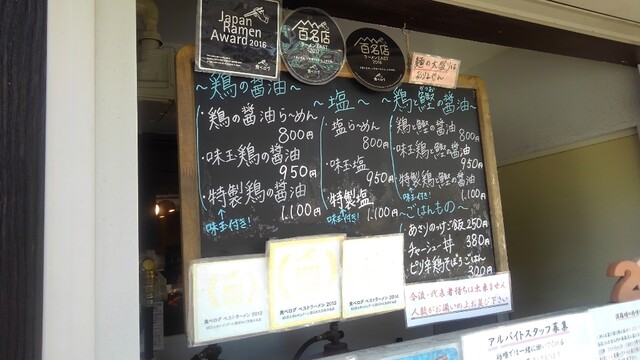 Japan
Ramen
Award 2016
百名店
ラーメン EAST
2017
食べログ
百名店
ラーメン EAST
食べログ
麺の大盛りは
ありません
～鶏の醤油～
・鶏の醤油ら～めん
800円
・味玉鶏の醤油
950円
・特製鶏の醤油
↑
味玉付き!
1.100円
～塩～
・塩らーめん
800円
・味玉塩
950円
・特製塩
↑
味玉付き!
1.100円
～鶏と鰹の醤油～
かつお
・鶏と鰹の醤油
800円
・味玉鶏と鰹の醤油
950円
・特製鶏と鰹の醤油
↑
味玉付き!
1.100円
～ごはんもの～
・あさりのっけご飯 250円
・チャーシュー丼 380円
・ピリ辛鶏そぼろごはん
300円
食べログ ベストラーメン 2012
食べログ ベストラーメン 2013
食べログ ベストラーメン 2014
合流・代表者待ちは出来ません
人数がお揃いの上お並び下さい
アルバイトスタッフ募集